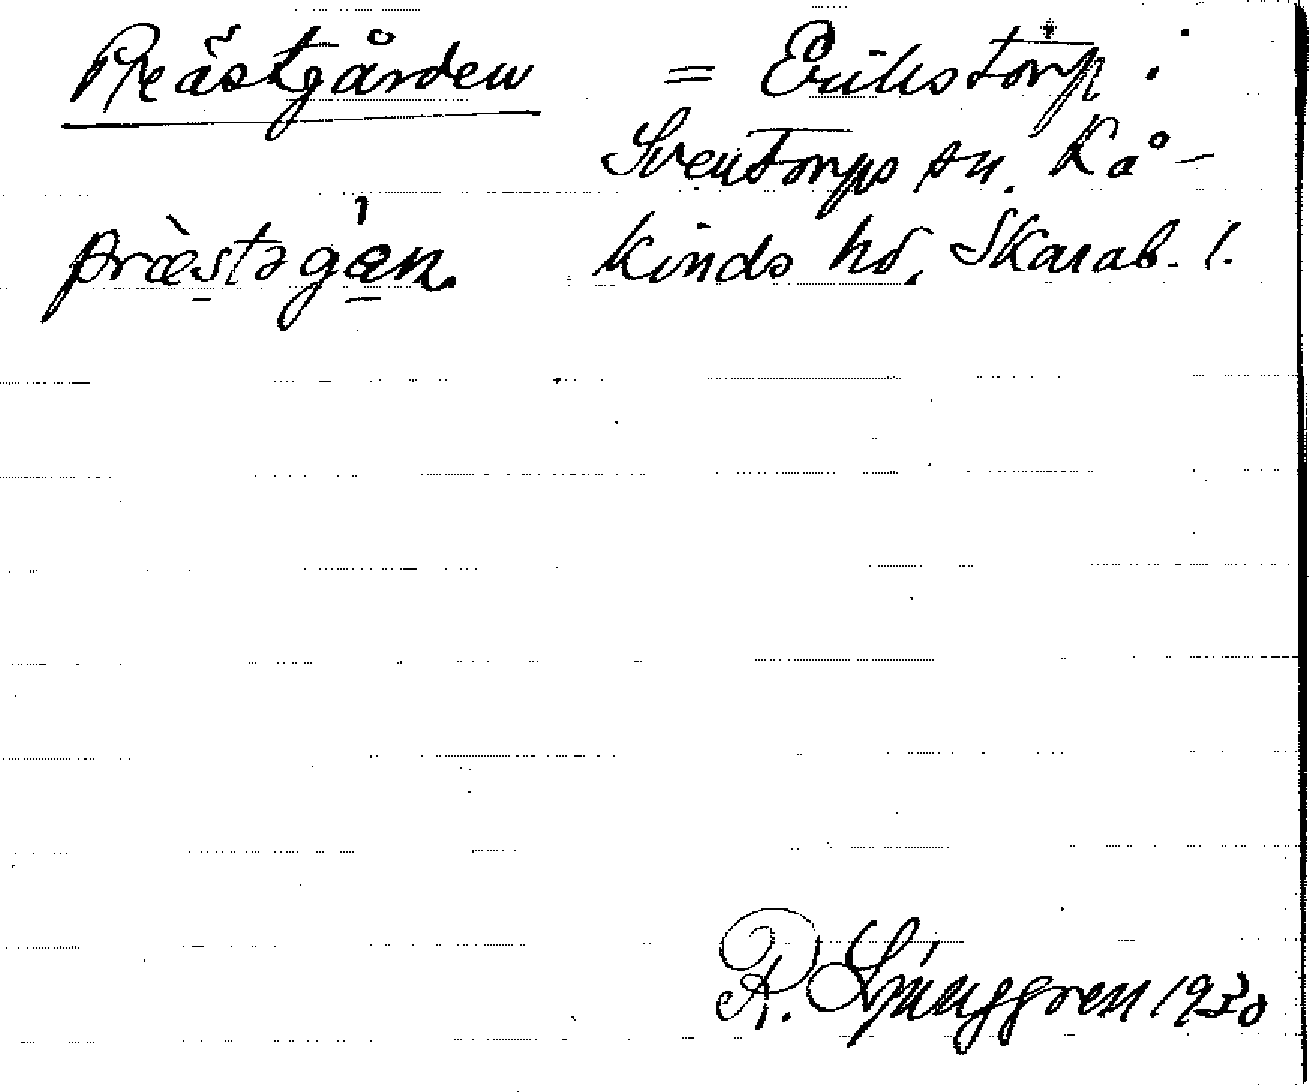 Prästgården = Erikstorp i
Sventorps sn. Kå-
kinds hd, Skarab. l.
præ̀stəgȧ́en.
R. Ljunggren 1930